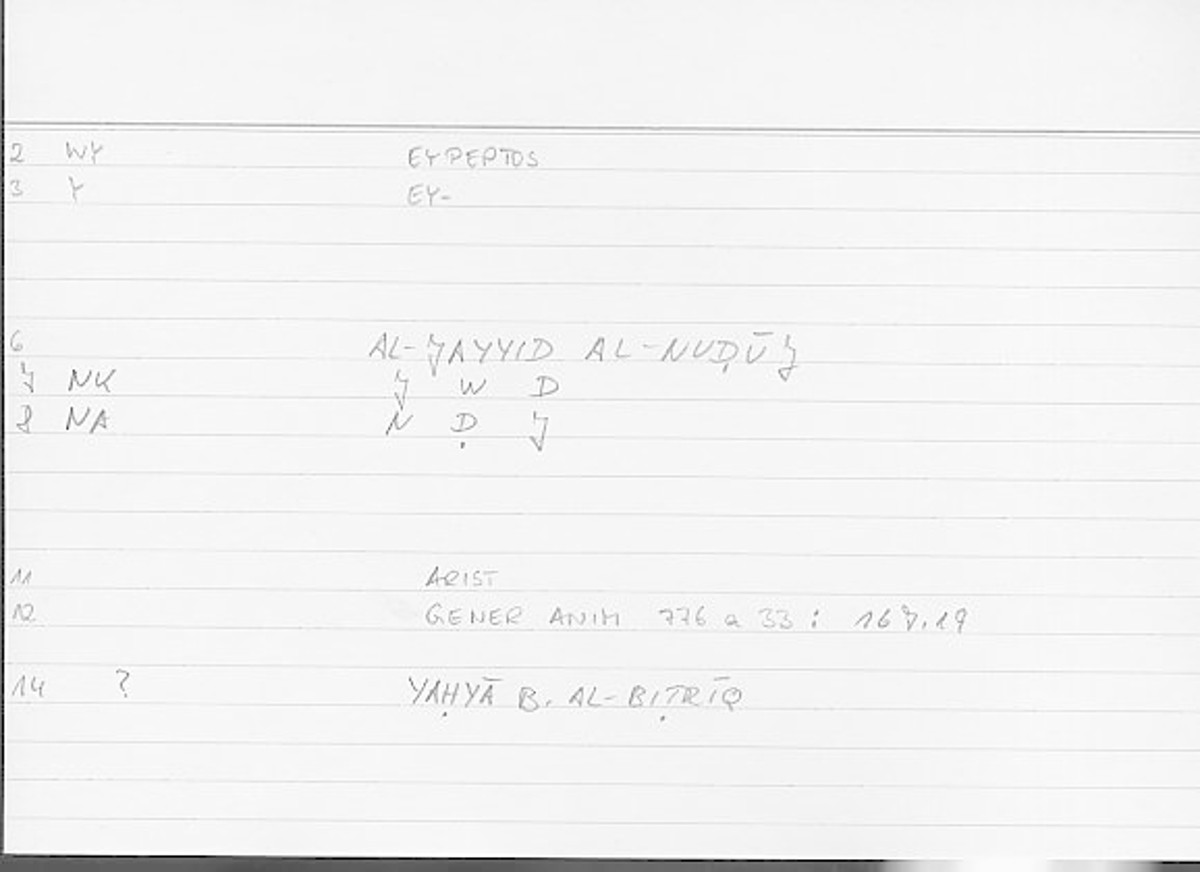 2 WY EYPEPTOS
3 Y EY-
6 AL-JAYYID AL-NUḌŪJ
7 NK J W D
8 NA N Ḍ J
11 ARIST
12 GENER ANIM 776 a 33 : 167.19
14 ? YAḤYĀ B. AL-BIṬRĪQ